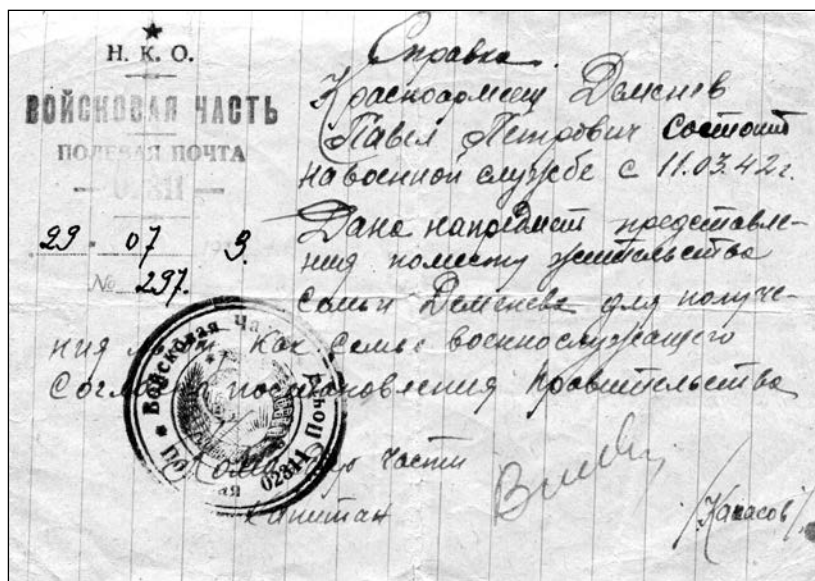 Н. К. О.
ВОЙСКОВАЯ ЧАСТЬ
ПОЛЕВАЯ ПОЧТА
02311
29 07 3.
№ 297.
Справка.
Красноармеец Деменев
Павел Петрович состоит
на военной службе с 11.03.42 г.
Дана на предмет представле-
ния по месту жительства
семьи Деменева для получе-
ния как семье военнослужащего
Согласно постановления Правительства
части
Капитан
Войсковая Часть
Полевая Почта
02311